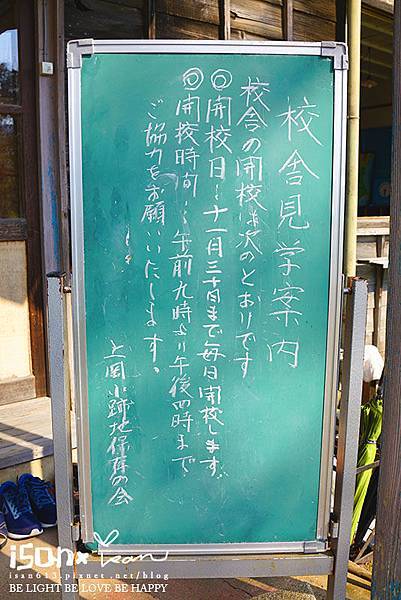 校舎見学案内
校舎の開校は次のとおりです
◎開校日…十一月三十日まで毎日開校します。
◎開校時間…午前九時より午後四時まで
ご協力をお願いいたします。
上岡小跡地保存の会
isan x Ivan
isan613.pixnet.net/blog
BE LIGHT BE LOVE BE HAPPY